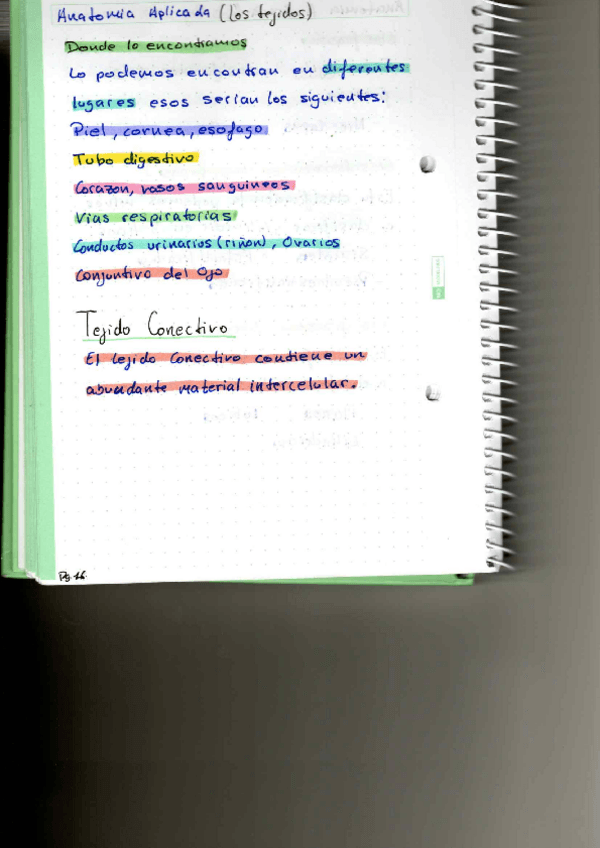 Anatomia Aplicada (Los tejidos)
Donde lo encontramos
Lo podemos encontrar en diferentes
lugares esos serian los siguientes:
Piel, cornea, esofago
Tubo digestivo
Corazon, vasos sanguineos
Vias respiratorias
Conductos urinarios (riñon), Ovarios
Conjuntivo del Ojo
Tejido Conectivo
El tejido Conectivo contiene un
abundante material intercelular.
Pg 16